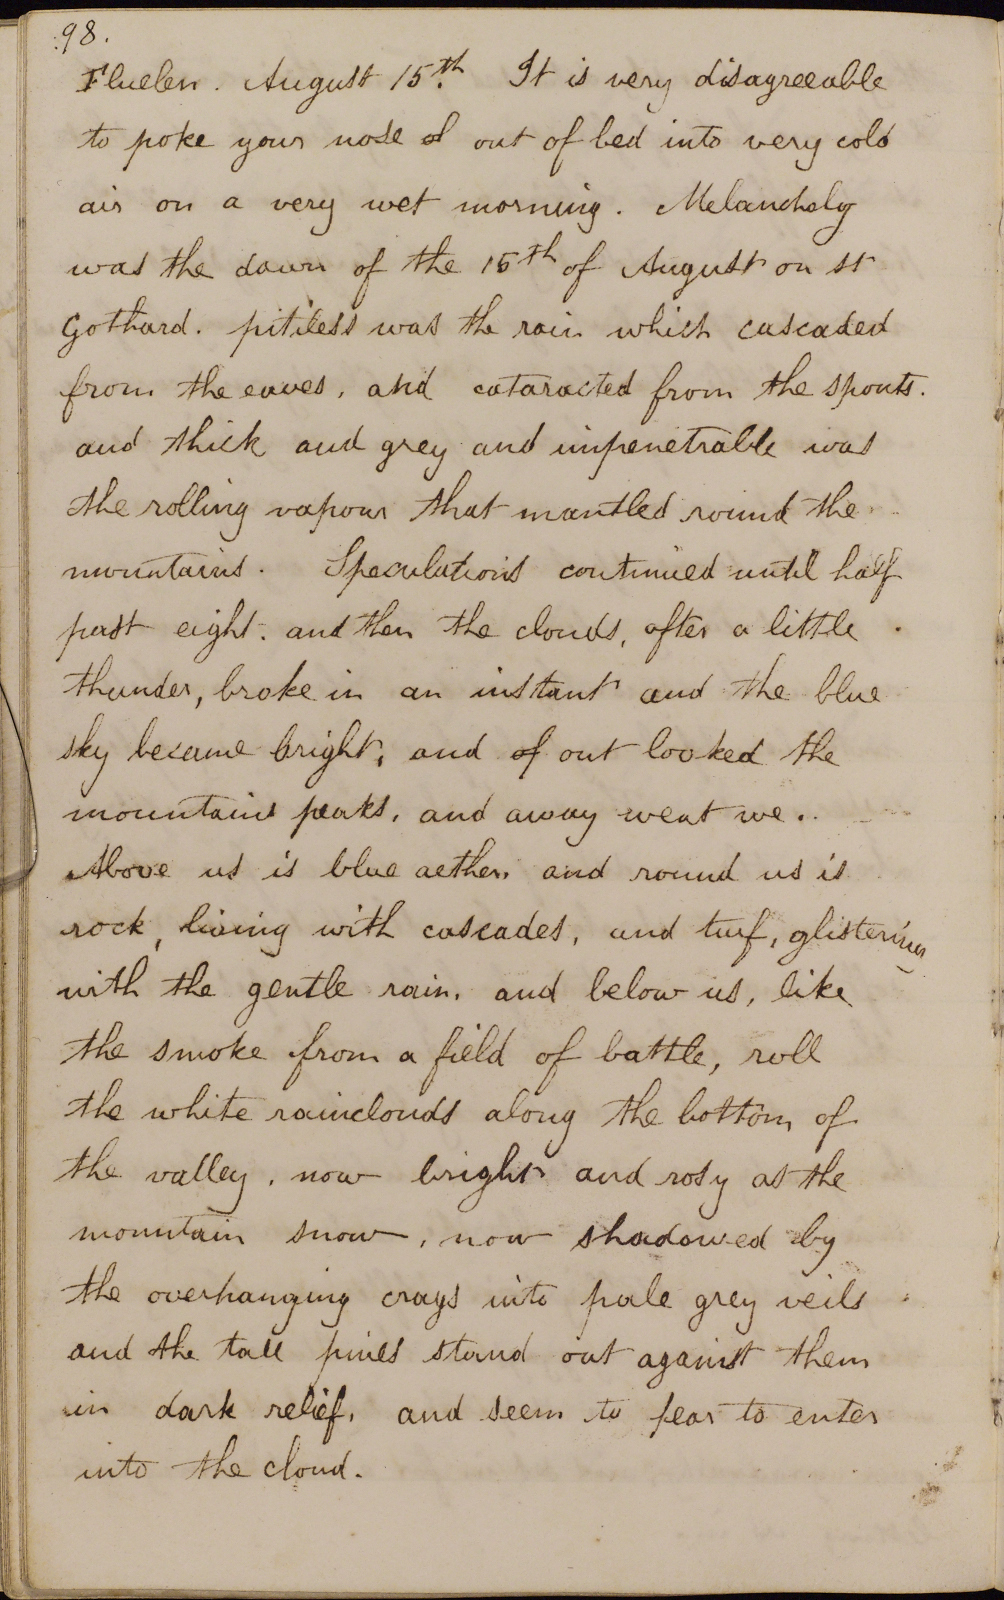 98.
Fluelen. August 15th. It is very disagreeable
to poke your nose out of bed into very cold
air on a very wet morning. Melancholy
was the dawn of the 15th of August on St
Gothard. pitiless was the rain which cascaded
from the eaves, and cataracted from the spouts.
and thick and grey and impenetrable was
the rolling vapour that mantled round the
mountains. Speculations continued until half
past eight. and then the clouds, after a little
thunder, broke in an instant and the blue
sky became bright, and of out looked the
mountains peaks, and away went we.
Above us is blue aether, and round us is
rock, living with cascades, and turf, glistering
with the gentle rain, and below us, like
the smoke from a field of battle, roll
the white rainclouds along the bottom of
the valley, now bright and rosy as the
mountain snow, now shadowed by
the overhanging crags into pale grey veils
and the tall pines stand out against them
in dark relief, and seem to fear to enter
into the cloud.